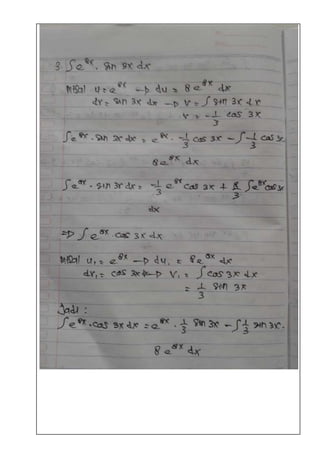 3 ∫e^8x . sin 3x dx
Misal u = e^8x → du = 8e^8x dx
dv = sin 3x dx → v = ∫sin 3x dx
v = -1/3 cos 3x
∫e^8x . sin 3x dx = e^8x . -1/3 cos 3x - ∫-1/3 cos 3x
8e^8x dx
∫e^8x . sin 3x dx = -1/3 e^8x cos 3x + 8/3 ∫e^8x cos 3x
dx
⇒ ∫e^8x cos 3x dx
Misal u₁ = e^8x → du₁ = 8e^8x dx
dv₁ = cos 3x → v₁ = ∫cos 3x dx
= 1/3 sin 3x
Jadi :
∫e^8x . cos 3x dx = e^8x . 1/3 sin 3x - ∫1/3 sin 3x .
8e^8x dx